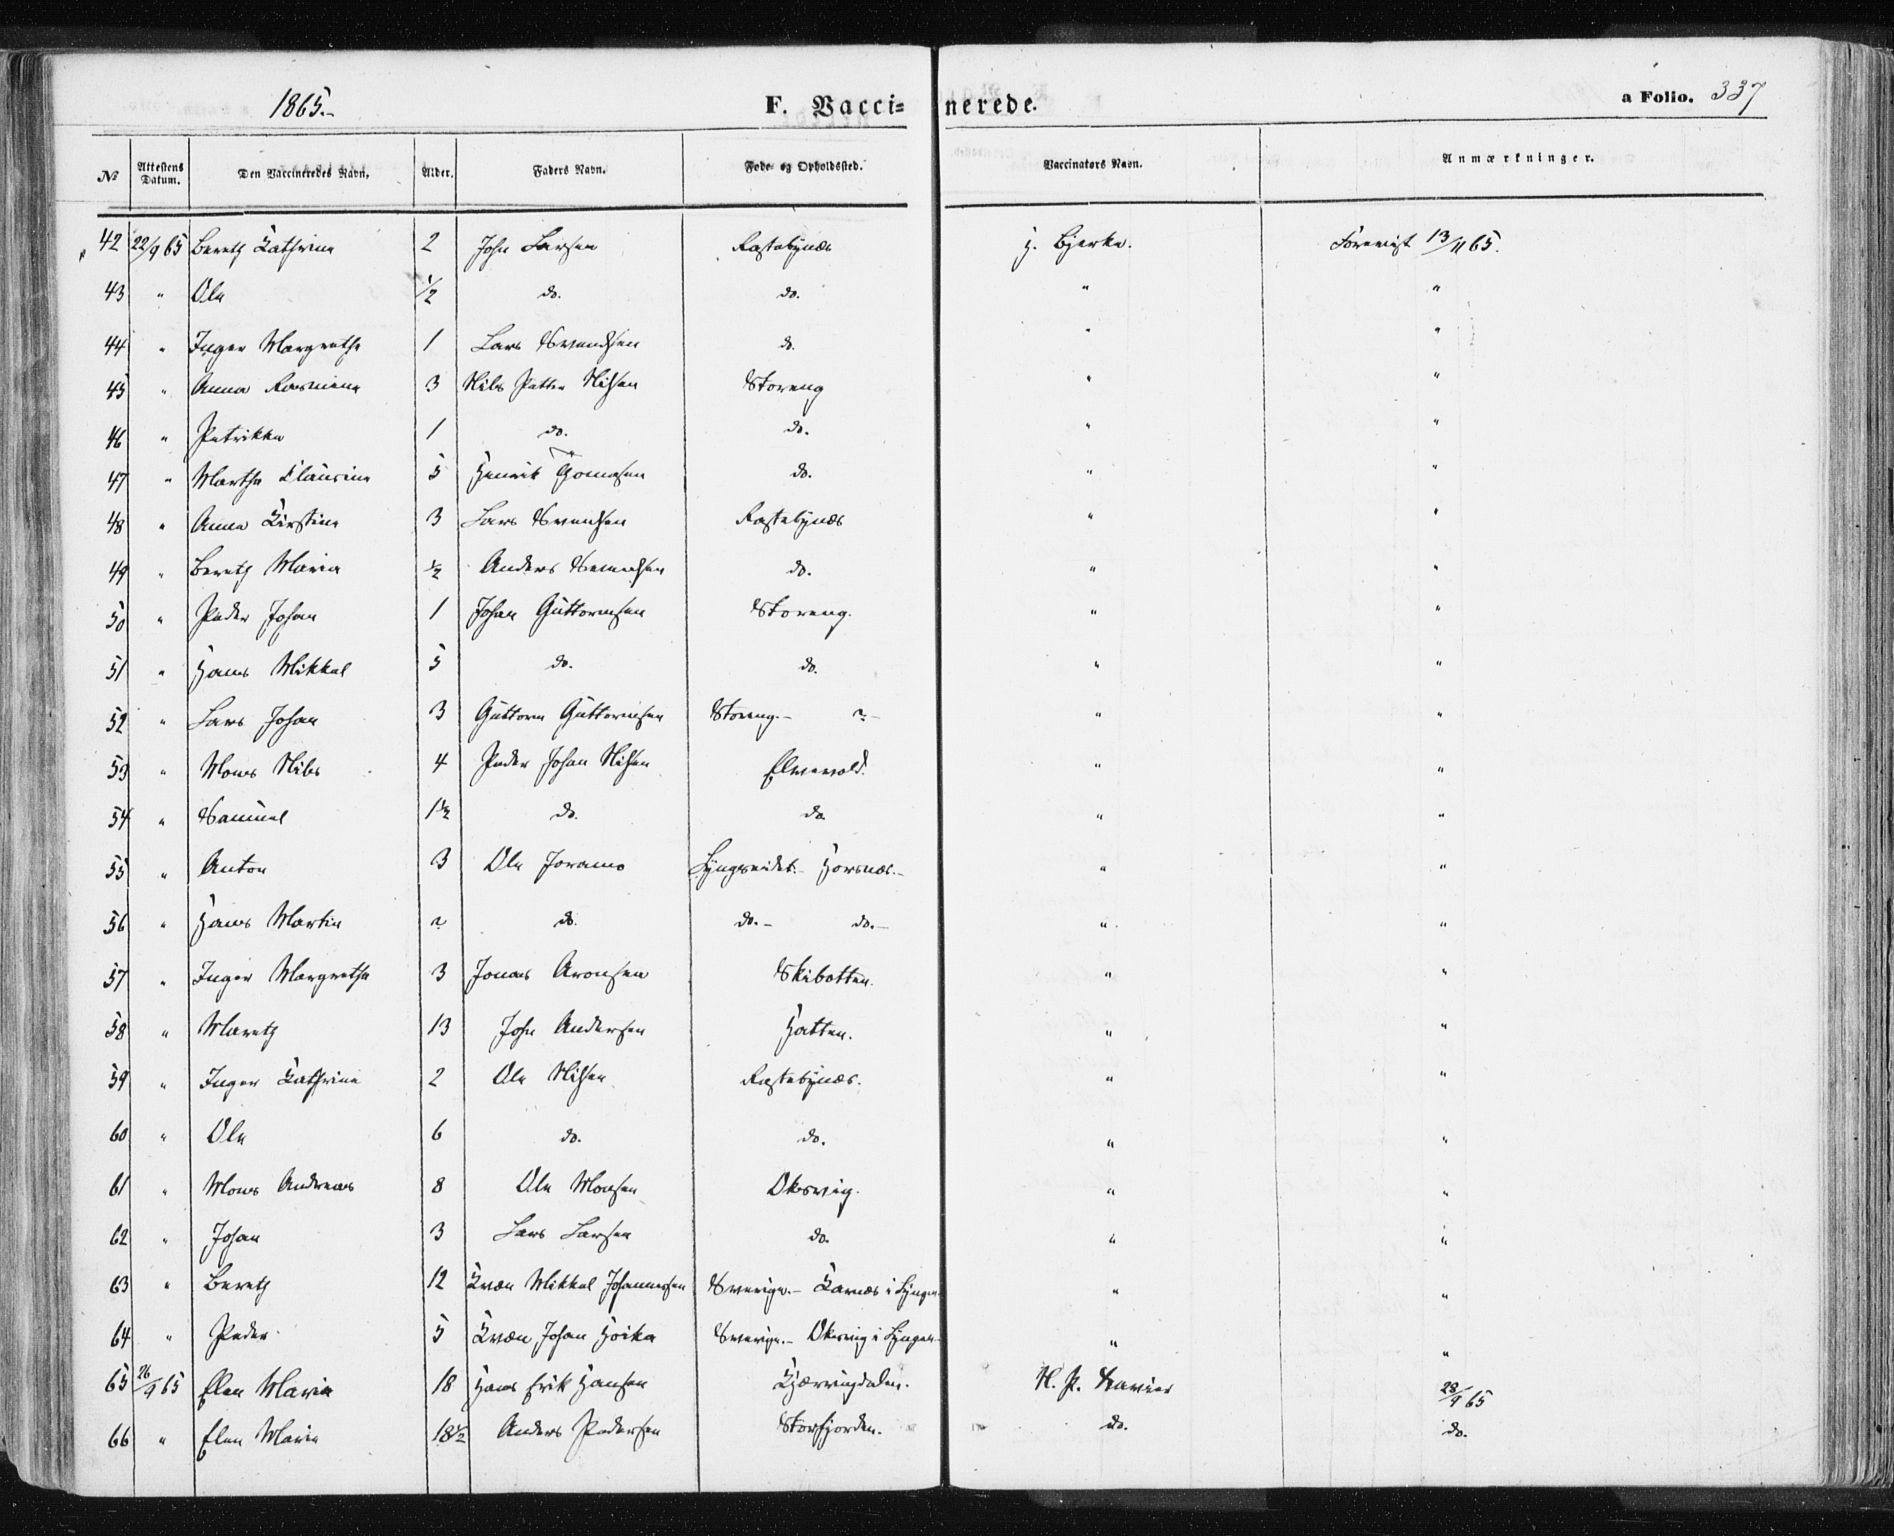 1865.- F. Vacci= nerede. a Folio. 337
No Attestens Datum. Den Vaccineredes Navn. Alder. Faders Navn. Føde- og Opholdssted. Vaccinators Navn. Anmærkninger.
42 22/9 65 Bereth Cathrine 2 John Larsen Rastebynæs J. Bjerke. Foreviist 13/11 65.
43 " Ole 1/2 do. do. " "
44 " Inger Margrethe 1 Lars Svendsen do. " "
45 " Anna Rasmine 3 Nils Petter Nilsen Storeng " "
46 " Petrikke 1 do. do. " "
47 " Marthe Clausine 5 Henrik Thomasen do. " "
48 " Anne Kirstine 3 Lars Svendsen Rastebynæs " "
49 " Bereth Maria 1/2 Anders Svendsen do. " "
50 " Peder Johan 1 Johan Guttormsen Storeng. " "
51 " Hans Mikkel 5 do. do. " "
52 " Lars Johan 3 Guttorm Guttormsen Storeng.- ?- " "
53 " Mons Nils 4 Peder Johan Nilsen Elvevold. " "
54 " Samuel 1 1/2 do. do. " "
55 " Anton 3 Ole Joramo Lyngseidet.- Horsnæs.- " "
56 " Hans Martin ? do. do.- do.- " "
57 " Inger Margrethe 3 Jonas Aronsen Skibotten. " "
58 " Mareth 13 John Andersen Hatten. " "
59 " Inger Cathrine 2 Ole Nilsen Rastebynæs. " "
60 " Ole 6 do. do. " "
61 " Mons Andreas 8 Ole Monsen Oksvig. " "
62 " Johan 3 Lars Larsen do. " "
63 " Bereth 12 Kvæn Mikkel Johannessen Sverige.- Karnæs i Lyngen " "
64 " Peder 5 Kvæn Johan Hoika Sverige.- Oksvig i Lyngen. " "
65 26/9 65 Elen Maria 18 Hans Erik Hansen Kjærringdalen. N. P. Xavier 28/9 65
66 " Elen Marie 18 1/2 Anders Pedersen Storfjorden. do. do.